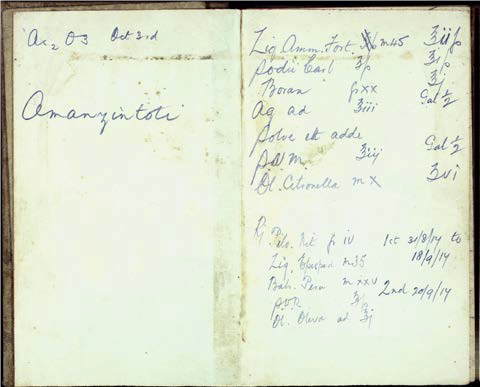 As₂O3 Oct 3rd
Amanzintoti
Liq Amm. Fort. m45 ʒiiſs
Sodii Carb ʒſs ʒſs
Boran gr xx ʒj
Aq ad ʒiii Gal ½
Solve et adde
S.V.M. ʒiij Gal ½
Ol. Citronella m x ʒvi
R
Pilo. Nit gr iv 1st 31/8/14 to
Liq. m35 18/9/14
Bals. Peru m xxv 2nd 20/9/14
S.V.R ʒſs
Ol. Oliva ad ʒj